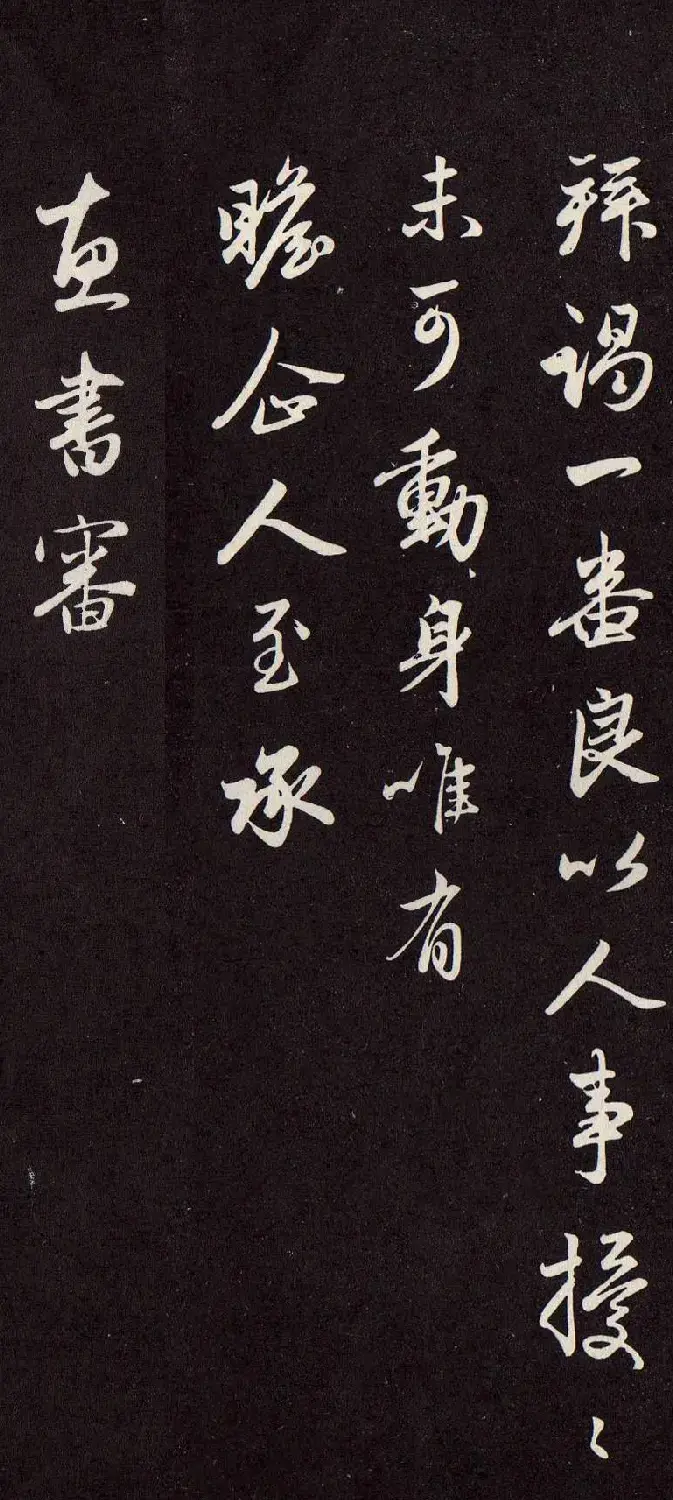 拜謁一番良以人事擾〻
未可動身唯有
瞻企人至承
惠書審